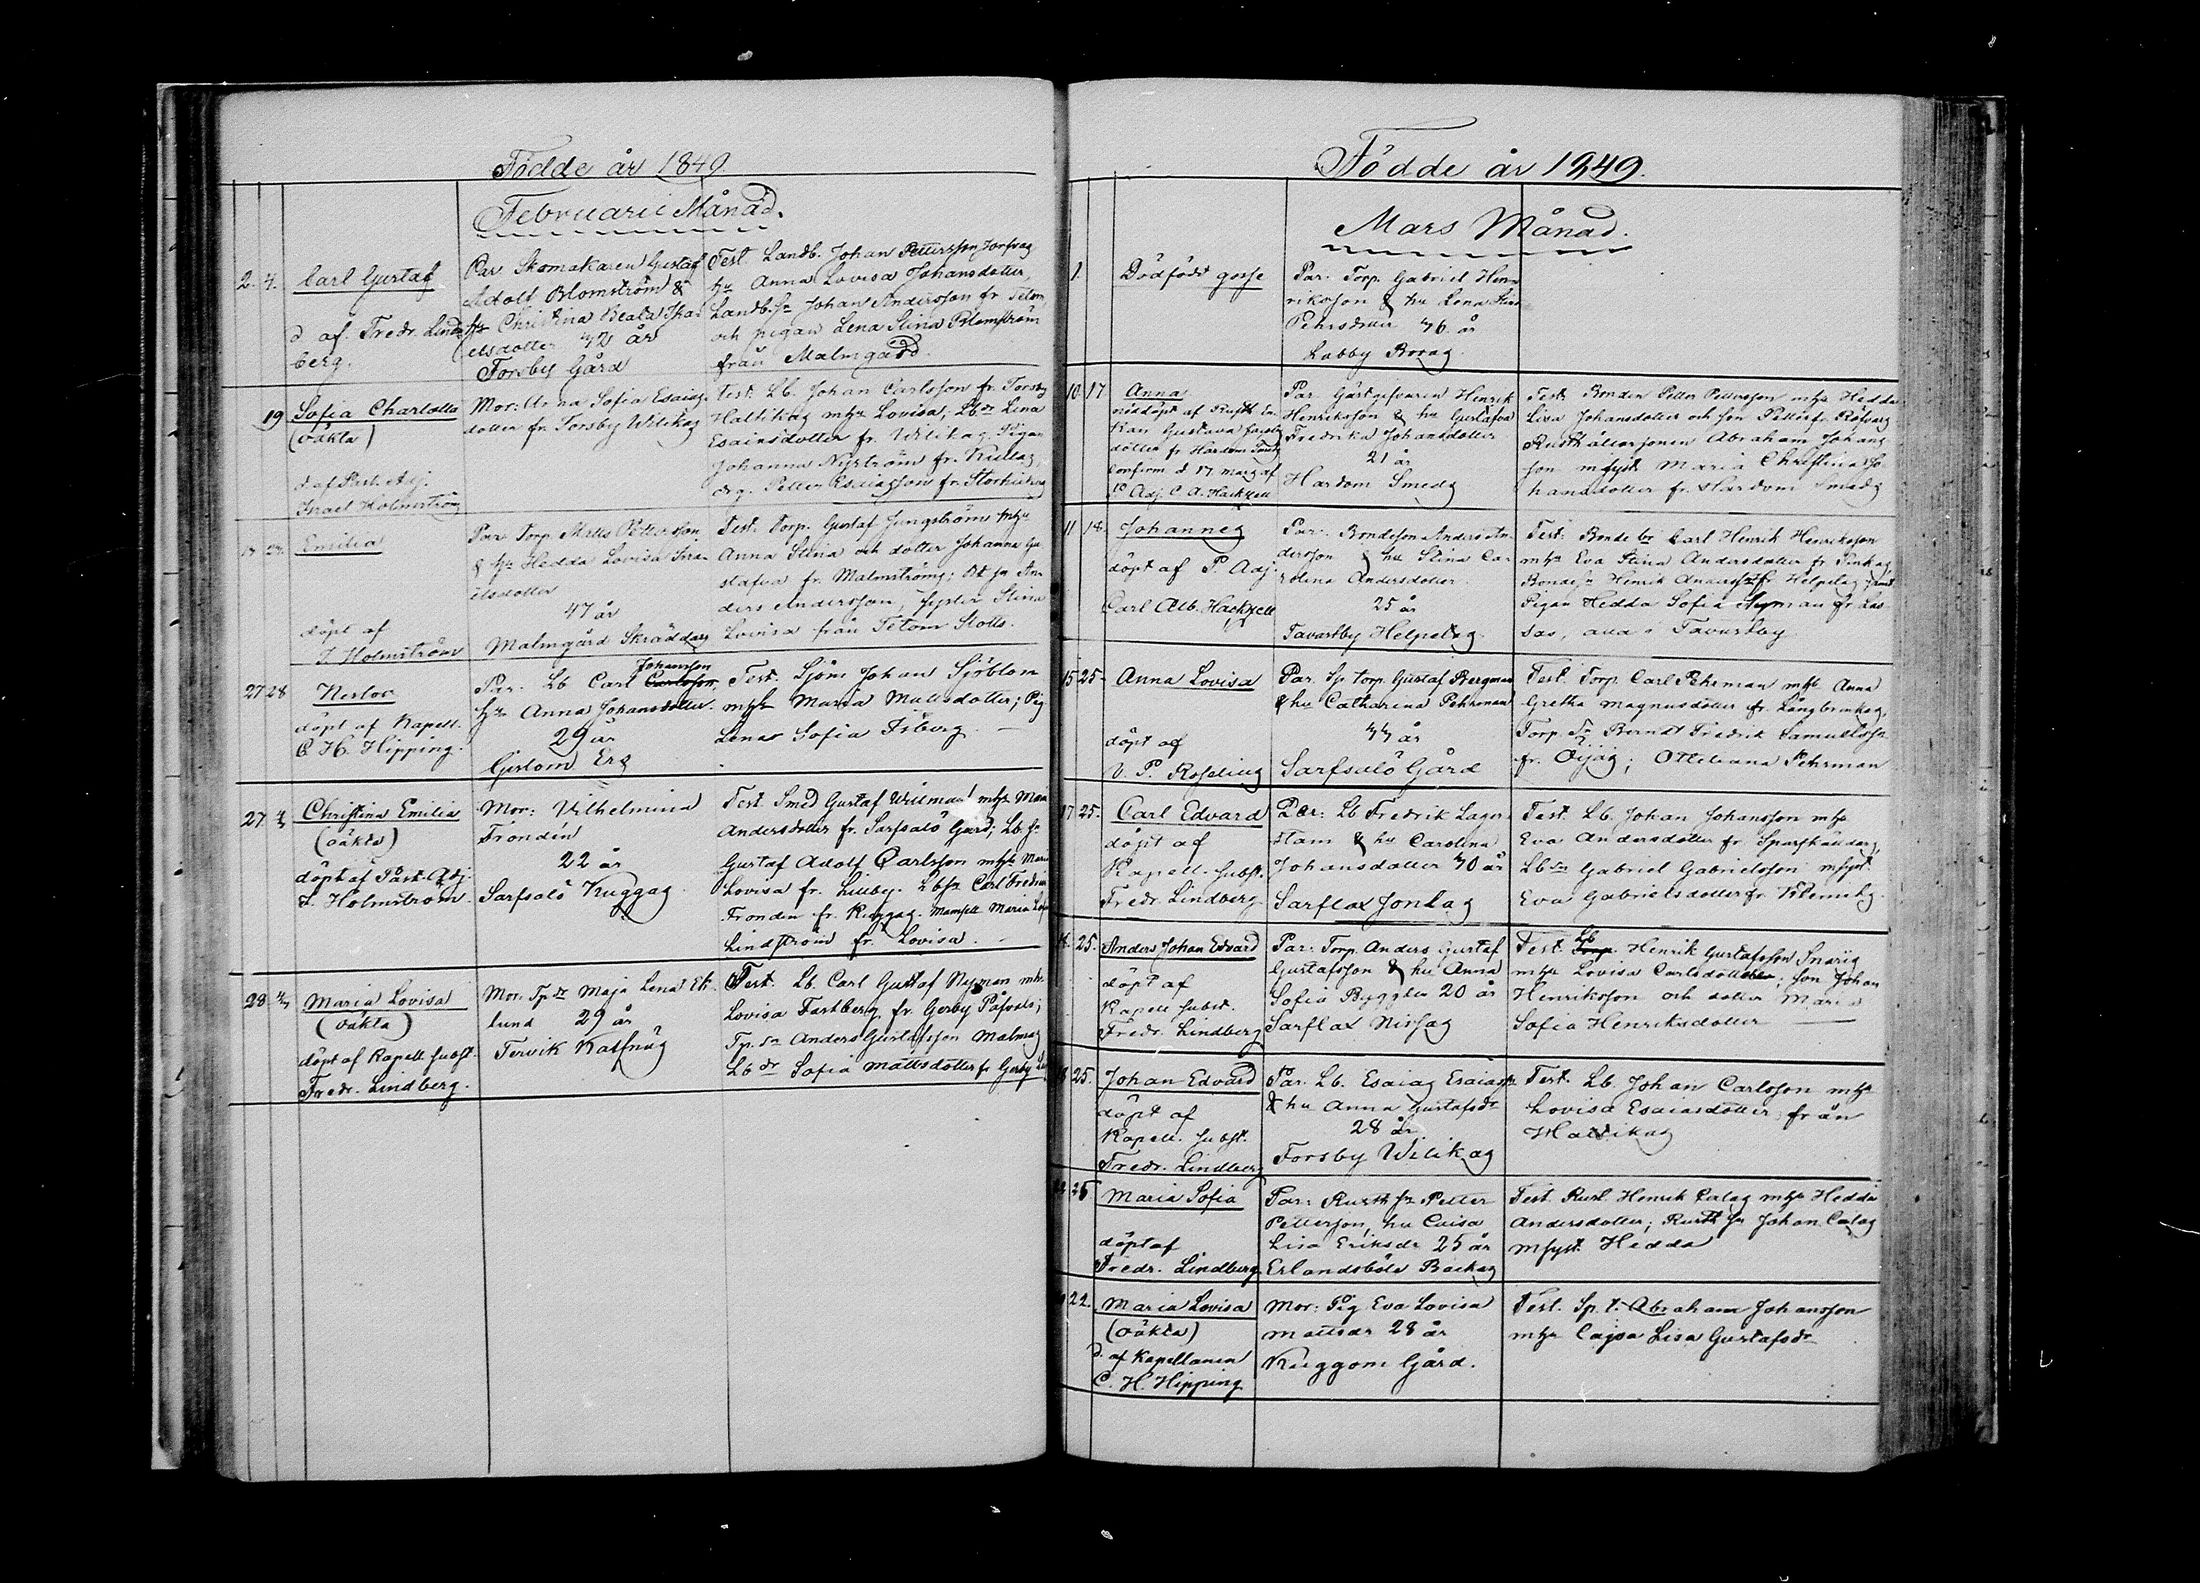 Födde år 1849.
Februarii Månad.
2. 4. Carl Gustaf
d af Fredr. Lind-
berg.
Par Skomakaren Gustaf
Adolf Blomström &
hu Christina Beata Isa-
elsdotter 42 år
Forsby Gård
Test Landb. Johan Pettersson
hu Anna Lovisa Johansdotter,
Landb. sn Johan Andersson fr Tetom
och pigan Lena Stina Blomström
från Malmgård
19 Sofia Charlotta
(oäkta)
d af Past. Adj.
Israel Holmström
Mor: Anna Sofia Esaias
dotter fr. Forsby Wilikas
Test: Lb. Johan Carlsson fr. Forsby
Hattikas mhu Lovisa; Lb dr Lena
Esaiasdotter fr. Wilikas. Pigan
Johanna Nyström fr.
drg. Petter Esaiasson fr.
Emilia
döpt af
I. Holmström
Par Torp Matts Pettersson
& hu Hedda Lovisa Isra-
elsdotter
47 år
Malmgård Skräddars
Test. Torp. Gustaf Ljungström mhu
Anna Stina och dotter Johanna Gu
stafva fr. Malmströms; sn An-
ders Andersson, syster Stina
Lovisa från Tetom Stolls.
27 28 Nestor
döpt af Kapell.
C. H. Hipping.
Par. Lb Carl Johansson Carlsson,
hu Anna Johansdotter.
29 år
Gislom Ers
Test. Sjöm Johan Sjöblom
mhu Maria Mattsdotter; Pig
Lena Sofia Isberg.
27 Christina Emilia
(oäkta)
döpt af Past. Adj.
I. Holmström.
Mor: Vilhelmina
Frondin
22 år
Sarfsalö Kuggas
Test. Smed Gustaf Willman mhu Maria
Andersdotter fr. Sarfsalö Gård; Lb. sn
Gustaf Adolf Carlsson mhu Maria
Lovisa fr. Lillby. Lb sn Carl Fredrik
Frondin fr. Kuggas. Mamsell Maria
Lindström fr. Lovisa.
28 Maria Lovisa
(oäkta)
döpt af Kapell. subst.
Fredr. Lindberg.
Mor. Tp dr Maja Lena Ek-
lund 29 år
Tervik Kalfnäs
Test. Lb. Carl Gustaf Nyman mhu
Lovisa Fastberg fr. Gerby Påfvals;
Tp. sn Anders Gustafsson Malmas
Lb dr Sofia Mattsdotter fr Gerby
Födde år 1849.
Mars Månad.
1. Dödfödd gosse
Par. Torp. Gabriel Hen-
riksson & hu Lena Stina
Pehrsdotter 46 år
Labby Boras
10 17 Anna
nöddöpt af Rusth
Gustava Jacobs
dotter fr Hardom
confirm d 17 mars af
P. Adj. C. A. Hackzell
Par Gästgifvaren Henrik
Henriksson & hu Gustafva
Fredrika Johansdotter
21 år
Hardom Smeds
Test. Bonden Petter Pettersson mhu Hedda
Lisa Johansdotter och son Petter fr. Röfvars
Rusthållarsonen Abraham Johans
son msyst. Maria Christina Jo
hansdotter fr. Hardom Smeds
11 18. Johannes
döpt af P. Adj.
Carl Alb. Hackzell
Par. Bondeson Anders An
dersson & hu Stina Ca-
rolina Andersdotter.
25 år
Tavastby Helpelas
Test. Bonde br Carl Henrik Henriksson
mhu Eva Stina Andersdotter fr Finkas
Bondesn Henrik Andersson fr. Helpelas samt
Pigan Hedda Sofia Nyman fr Las
sas, alla i Tavastby
15 25 Anna Lovisa
döpt af
V. P. Roseling
Par. Sp torp. Gustaf Bergman
& hu Catharina Pehrman
44 år
Sarfsalö Gård
Test. Torp. Carl Pehrman mhu Anna
Gretha Magnusdotter fr. Långbrinkas,
Torp Sn Berndt Fredrik Samuelsson
fr. Öijas; Ottiliana Pehrman
17 25. Carl Edvard
döpt af
Kapell. subst.
Fredr. Lindberg
Par: Lb Fredrik Lager-
stam & hu Carolina
Johansdotter 40 år
Sarflax Jonlas
Test. Lb. Johan Johansson mhu
Eva Andersdotter fr
Lb sn Gabriel Gabrielsson msyst
Eva Gabrielsdotter fr
25. Anders Johan Edvard
döpt af
Kapell subst.
Fredr. Lindberg
Par: Torp. Anders Gustaf
Gustafsson & hu Anna
Sofia Byggter 20 år
Sarflax Nissas
Test. Lb Torp. Henrik Gustafsson Snärig
mhu Lovisa Carlsdotter; son Johan
Henriksson och dotter Maria
Sofia Henriksdotter
25. Johan Edvard
döpt af
Kapell. subst.
Fredr. Lindberg
Par. Lb. Esaias Esaiasson
& hu Anna Gustafsdr
28 år
Forsby Wilikas
Test. Lb. Johan Carlsson mhu
Lovisa Esaiasdotter från
Hattikas
25 Maria Sofia
döpt af
Fredr. Lindberg
Par: Rusth sn Petter
Pettersson, hu Caisa
Lisa Eriksdr 25 år
Erlandsböle Backas
Test. Rust. Henrik Calas mhu Hedda
Andersdotter; Rusth sn Johan Calas
msyst. Hedda
22. Maria Lovisa
(oäkta)
d. af Kapellanen
C. H. Hipping
Mor: Pig Eva Lovisa
Mattsdr 28 år
Kuggom Gård.
Test. Sp. t. Abraham Johansson
mhu Cajsa Lisa Gustafsdr